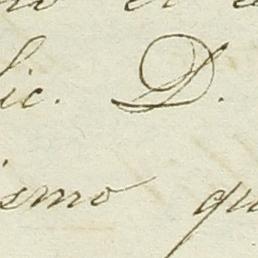 lic. D.
ismo qu